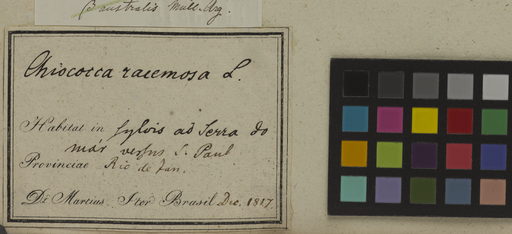 β australis Müll. Arg.
Chiococca racemosa L.
Habitat in sylvis ad Serra do
mar versus S. Paul
Provinciae Rio de Jan.
Dr. Martius. Iter Brasil. Dec. 1817